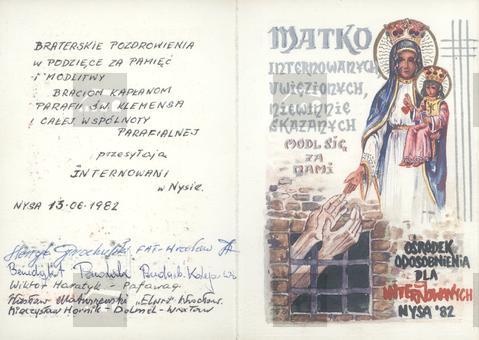 BRATERSKIE POZDROWIENIA
W PODZIĘCE ZA PAMIĘĆ
i MODLITWY
BRACIOM KAPŁANOM
PARAFII ŚW. KLEMENSA
i CAŁEJ WSPÓLNOTY
PARAFIALNEJ
przesyłają
INTERNOWANI
w Nysie.
NYSA 13-06-1982
FAT-Wrocław
Benedykt
Wiktor - Pafawag
"Elwro" Wrocław.
Mieczysław Hornik - Dolmel - Wrocław
MATKO
INTERNOWANYCH,
UWIĘZIONYCH,
NIEWINNIE
SKAZANYCH
MÓDL SIĘ
ZA
NAMI
OŚRODEK
ODOSOBNIENIA
DLA
INTERNOWANYCH
NYSA '82